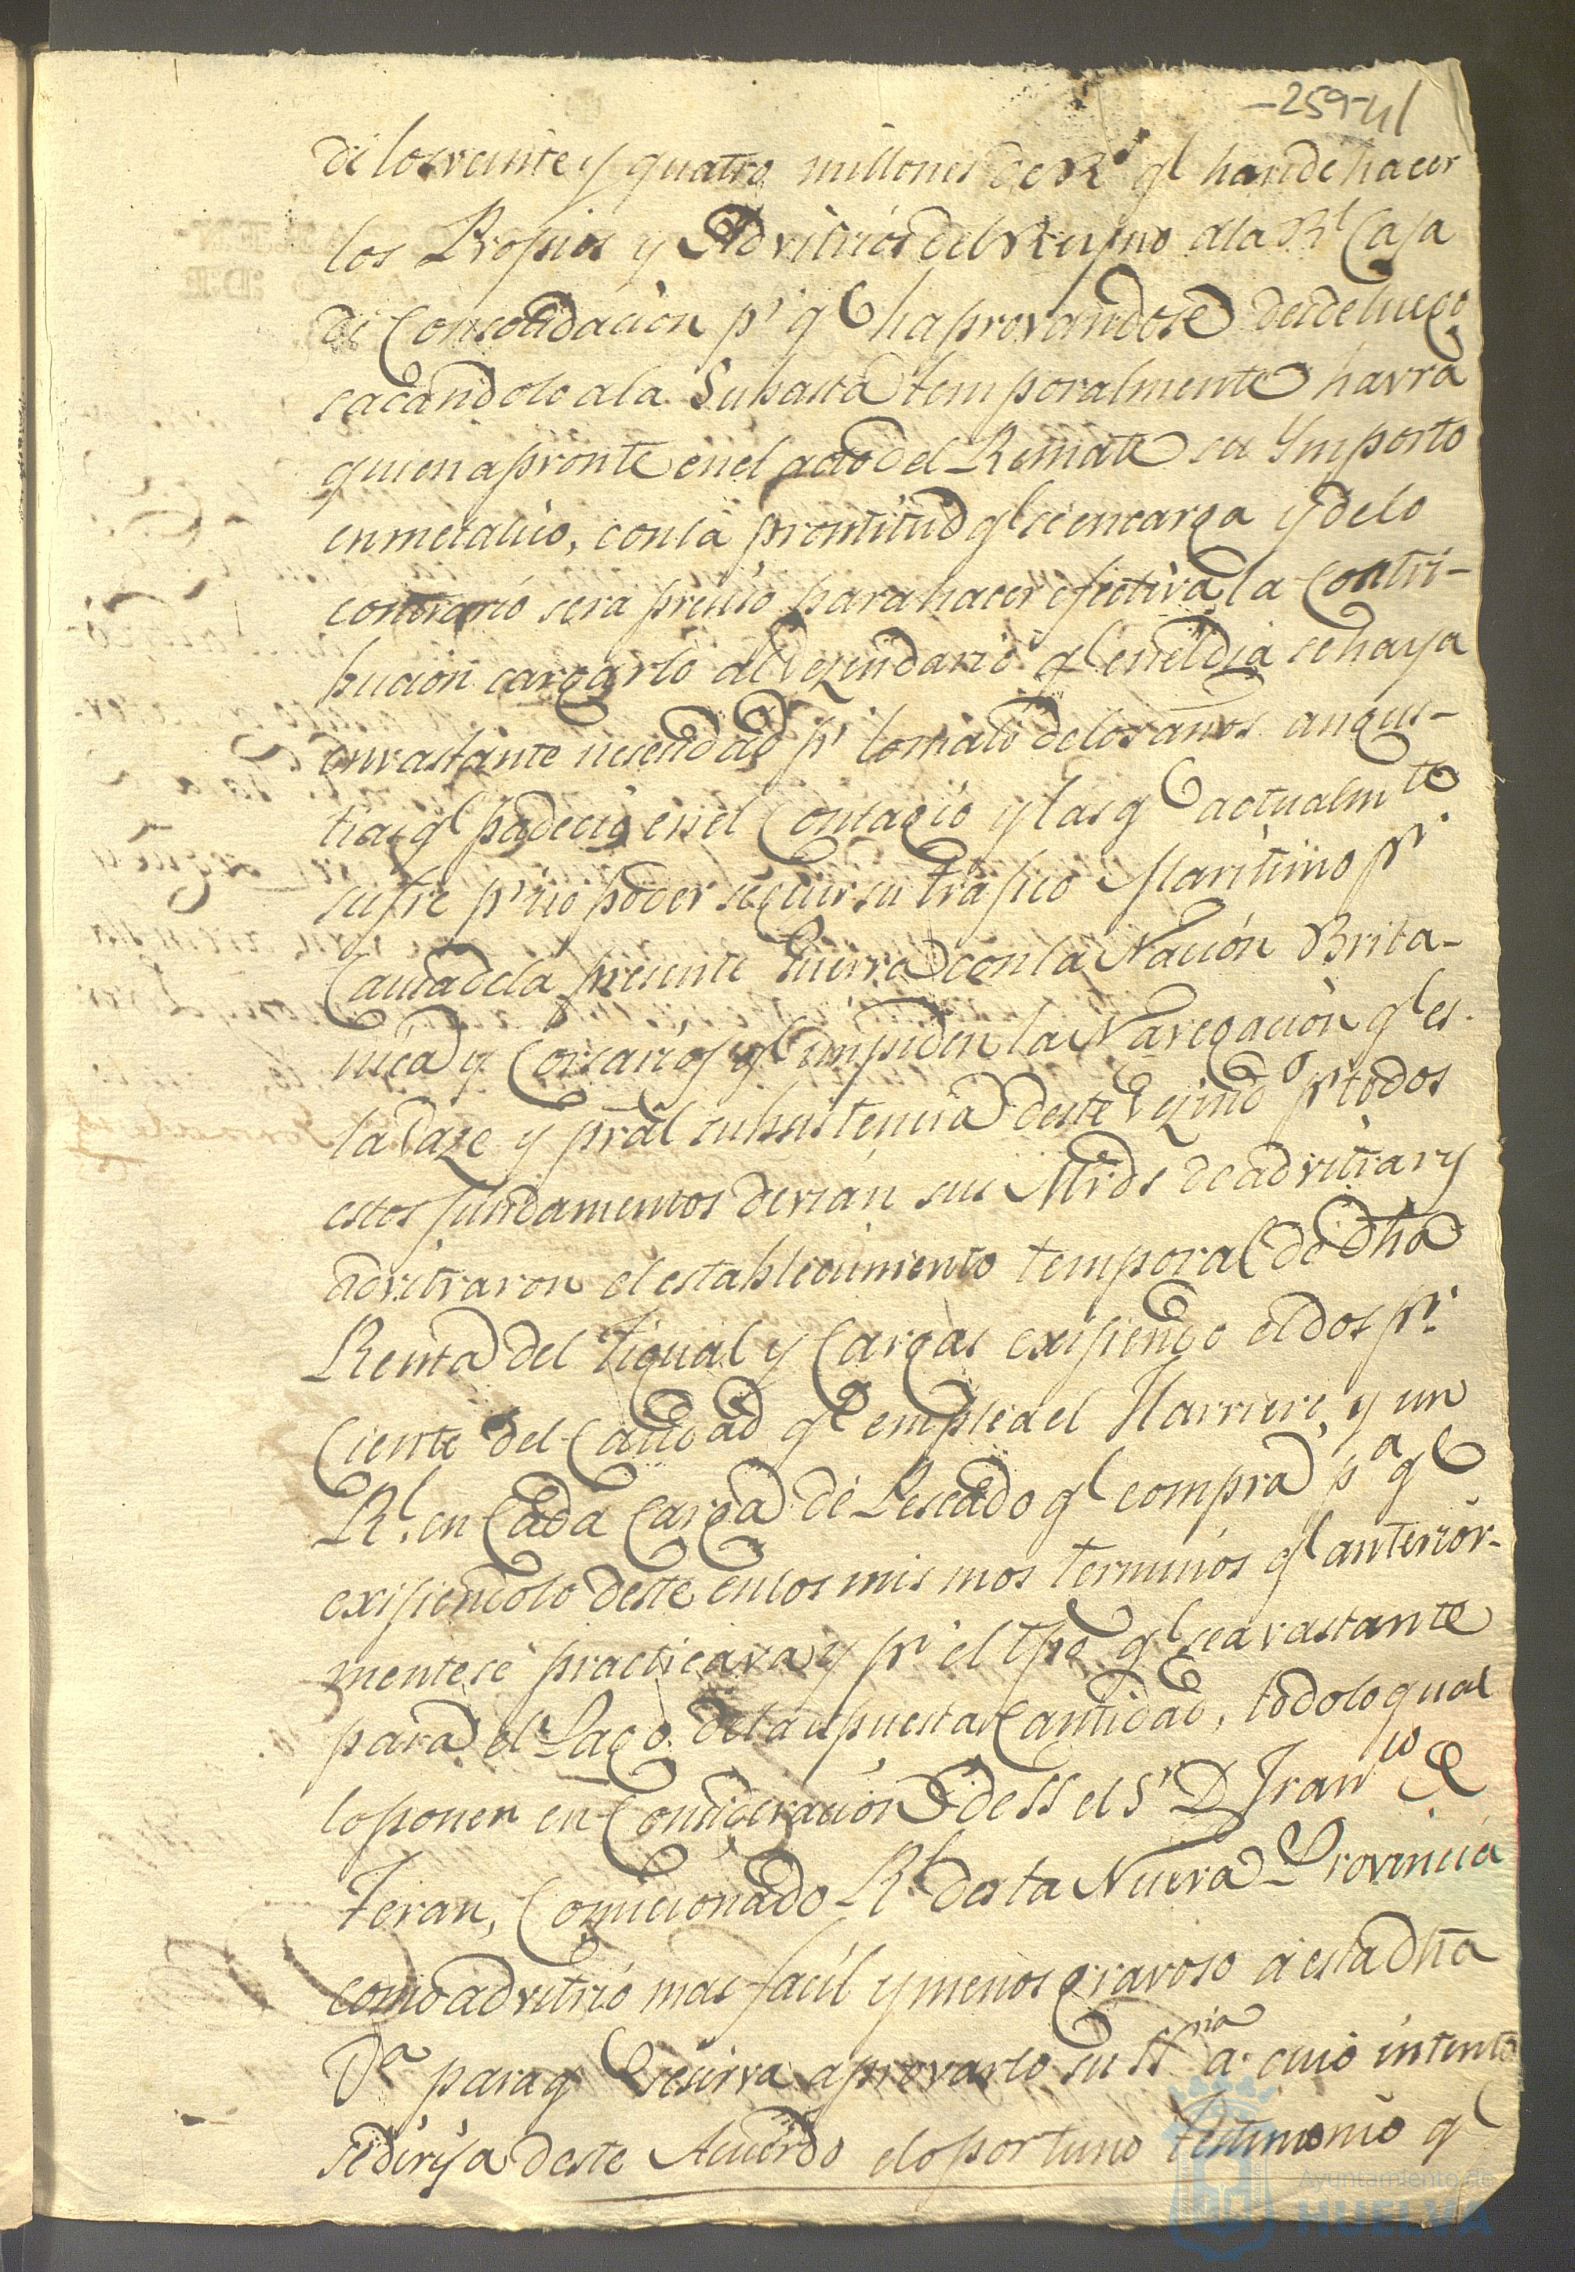 -259-41
de los veinte y quatro millones de Rs ql han de hacer
los Propios y Advitrios del Reyno a la Rl Caja
de Consolidacion pr ql haprovandose desde luego
sacandolo a la Subasta temporalmente havra
quien apronte en el acto del Remate su Ymporto
en metalico, con la prontitud ql se encarga y de lo
contrario sera preciso para hacer efectiva la Contri-
bucion cargarlo al Vezindario ql en el dia se haya
en vastante nesecidad pr lo malo de los años angus-
tias ql padecio en el Contagio y las ql actualmte
sufre pr no poder seguir su trafico Maritimo pr
Causa de la presente Guerra con la Nacion Brita-
nica y Corsarios ql impiden la Navegacion ql es
la Vaze y pral subsistencia deste Vezindo pr todos
estos fundamentos devian sus Mrds de advitrar y
advitraron el establecimiento temporal de dha
Renta del Tigual y Cargas exijiendo el dos pr
Ciento del Caudad ql emplea el Harriero, y un
Rl. en Cada Carga de Pescado ql compra pa ql
exijiendolo deste en los mismos terminos ql anterior-
mente se practicava y pr el tpo ql sea vastante
para el Pago de la espuesta Cantidad, todo lo qual
lo ponen en Consideracion de SS el Sr D Franco de
Teran, Comicionado Rl desta Nueva Provincia
como advitrio mas facil y menos gravoso a esta dha
Va para ql se sirva aprovarlo su SSria a cuio intento
se dirija deste Acuerdo el oportuno testimonio ql
Ayuntamiento de
HUELVA